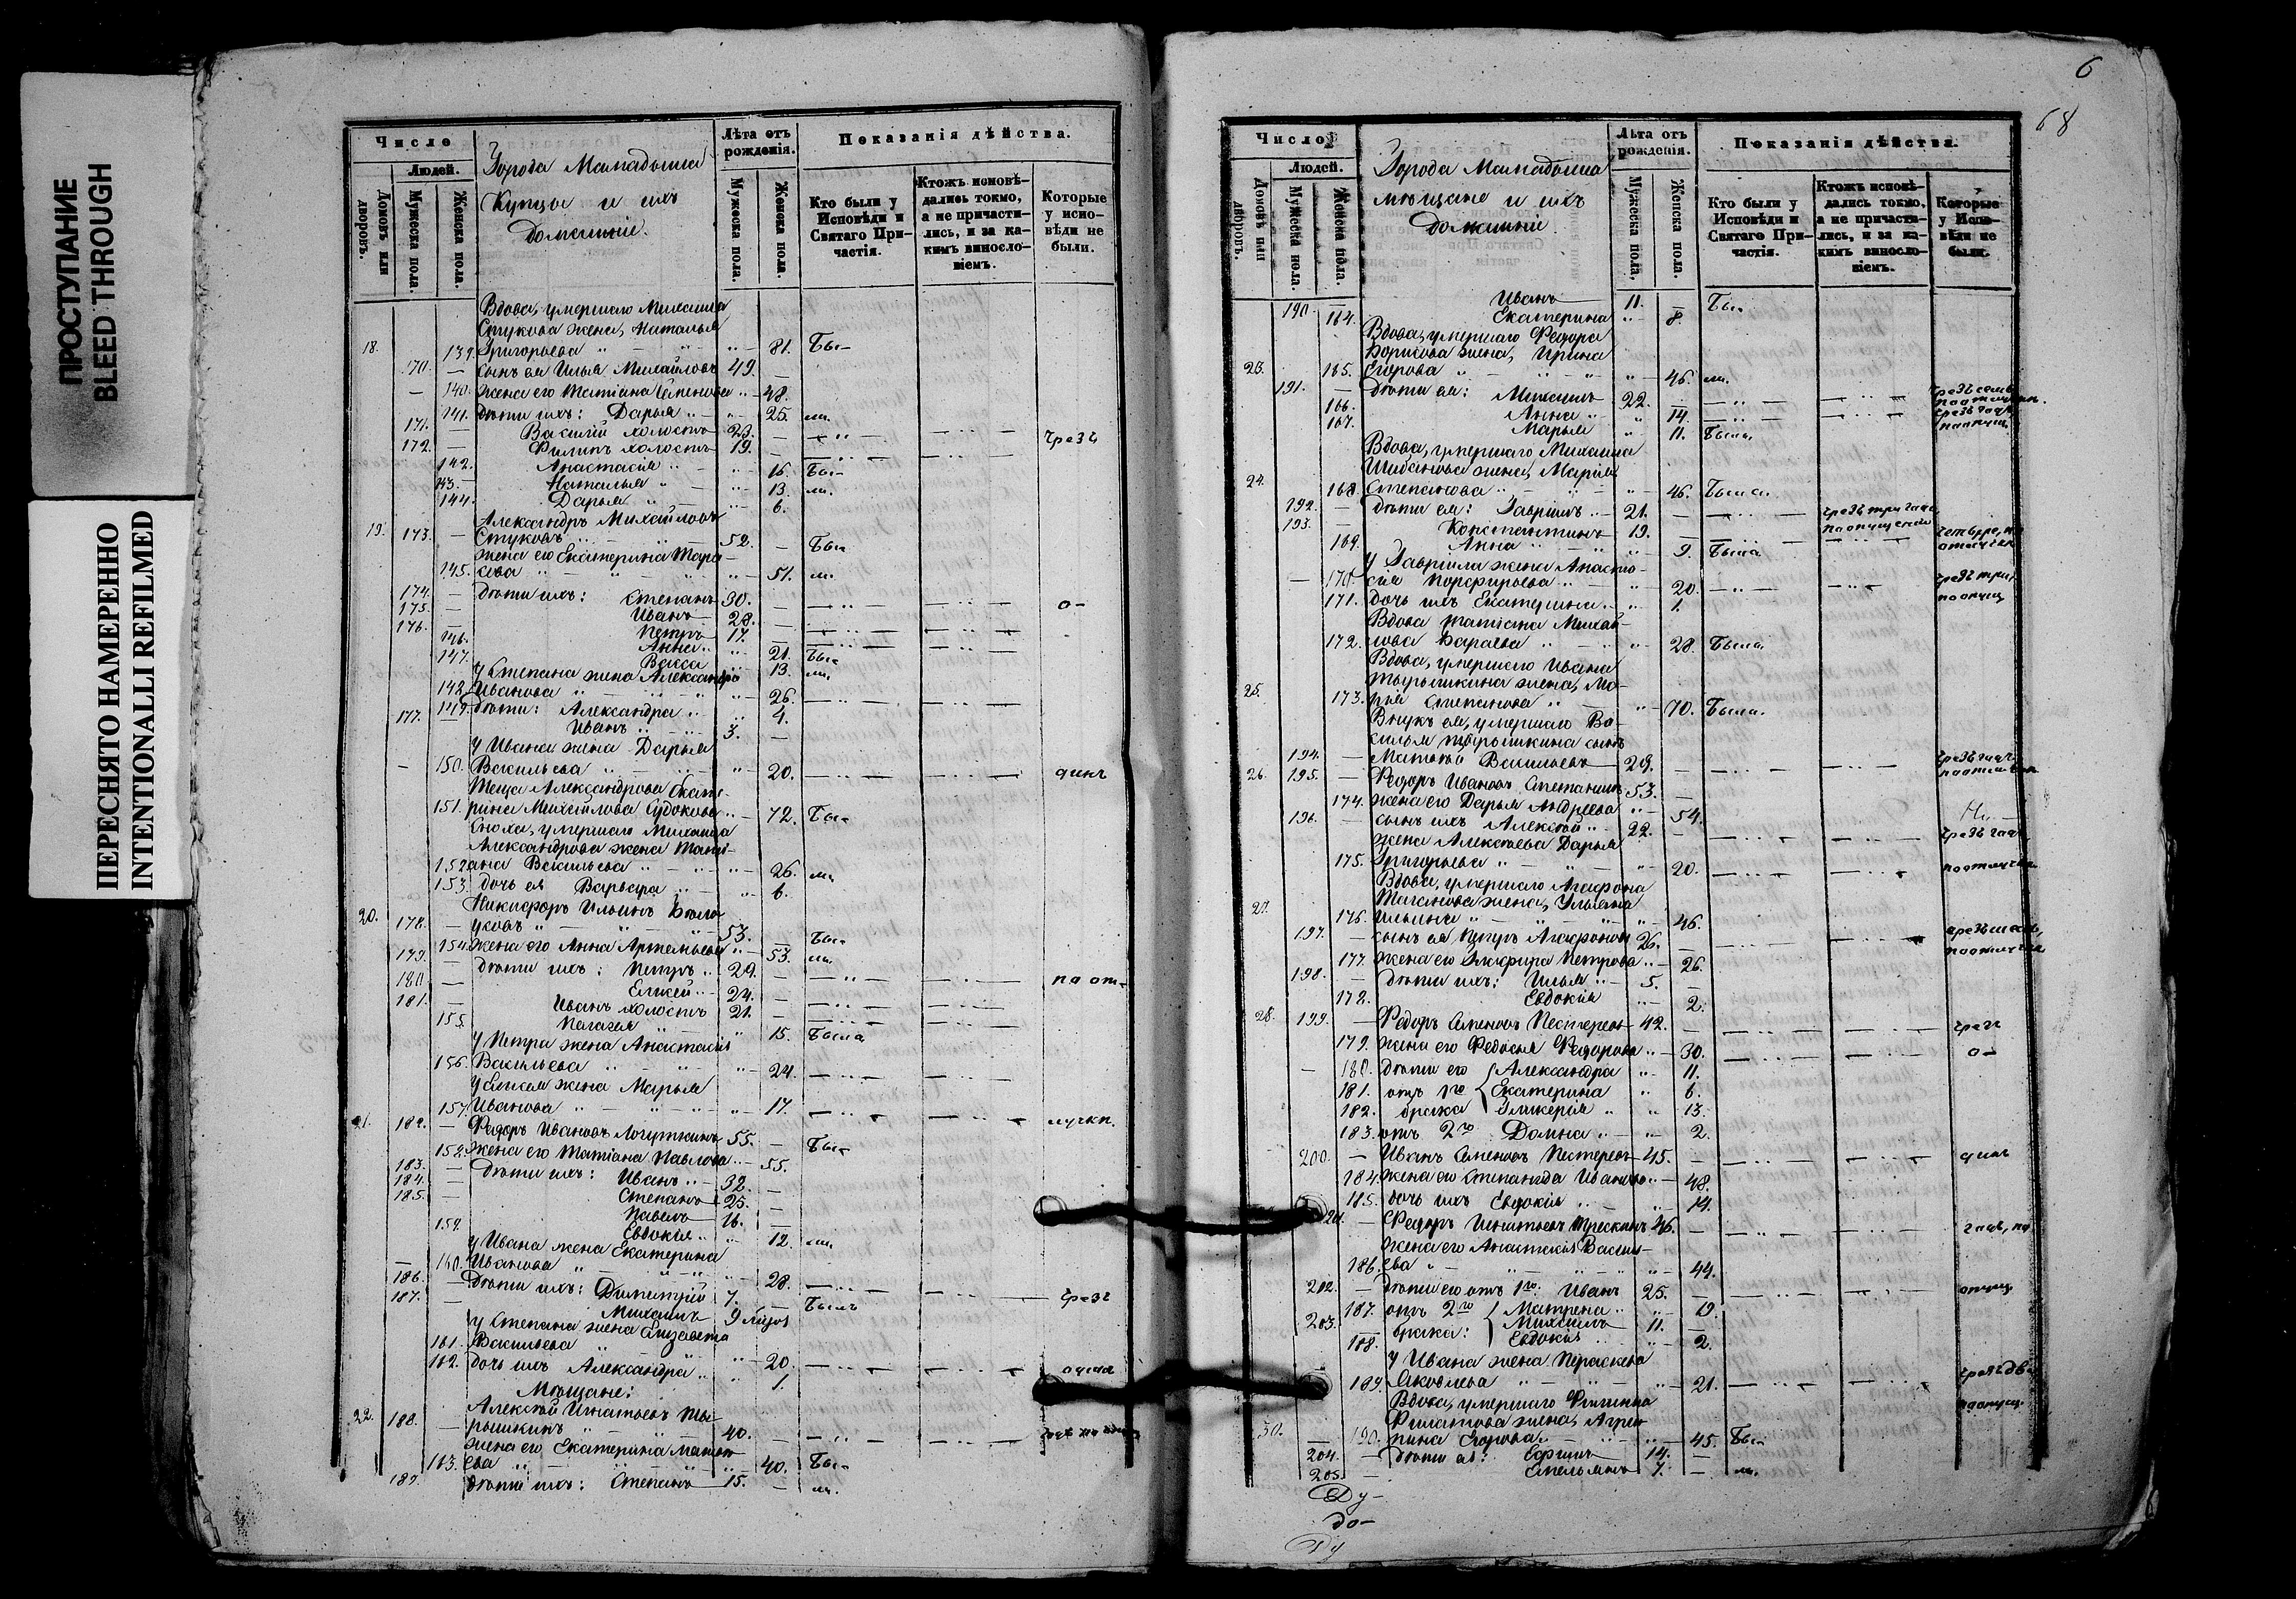 ПРОСТУПАНИЕ
BLEED THROUGH
ПЕРЕСНЯТО НАМЕРЕННО
INTENTIONALLI REFILMED
Число
Людей.
Домовъ или дворовъ.
Мужеска пола.
Женска пола.
Города Мамадыша
Купцы и ихъ
домашніе.
Лѣта отъ рожденія.
Мужеска пола.
Женска пола.
Показанія дѣйства.
Кто были у Исповѣди и Святаго Причастія.
Ктожъ исповѣдались токмо, а не причастились, и за какимъ винословіемъ.
Которые у исповѣди не были.
Вдова, умершаго Михаила
Стукова жена, Наталья
18. 139. Григорьева 81. Бы-
170. — сынъ ея Илья Михайловъ 49. —
— 140. жена его Татіана Семенова 48.
141. дѣти ихъ: Дарья 25. ли.
171. — Василій холостъ 23. —
172. — Филипъ холостъ 19. — чрезъ
142. Анастасія 16. Бы-
143. Наталья 13. ли.
144. Дарья 6.
Александръ Михайловъ
19. 173. — Стуковъ 52. — Бы-
жена его Екатерина Тара-
145. сова 51. ли.
174. — дѣти ихъ: Степанъ 30. — о-
175. — Иванъ 28. —
176. — Петръ 17. —
146. Анна 21. Бы-
147. Васса 13. ли.
у Степана жена Александра
148. Иванова 26.
149. дѣти: Александра 4.
177. — Иванъ 3. —
у Ивана жена Дарья
— 150. Васильева 20. динъ
Теща Александрова Екате-
151. рина Михайлова Судокова 72. Бы-
Сноха, умершаго Михаила
Александрова жена Тать-
152. яна Васильева 26. ли.
153. дочь ея Варвара 6.
Никифоръ Ильинъ Бѣло-
20. 178. — усовъ 53. — Бы-
154. жена его Анна Артемьева 53. ли.
179. — дѣти ихъ: Петръ 29. — по от-
180. — Елисей 24. —
181. — Иванъ холостъ 21. —
155. Пелагея 15. Была
у Петра жена Анастасія
156. Васильева 24.
у Елисея жена Марья
157. Иванова 17. лучкѣ.
21. 182. — Ѳедоръ Ивановъ Логуткинъ 55. — Бы-
158. жена его Татіана Павлова 55.
183. — дѣти ихъ: Иванъ 32. —
184. — Степанъ 25. —
185. — Павелъ 16. —
159. Евдокія 12. ли.
у Ивана жена Екатерина
— 160. Иванова 28.
186. — дѣти ихъ: Димитрій 7. — Былъ чрезъ
187. — Михаилъ 9 мѣсяц
у Степана жена Елизавета
161. Васильева 20.
162. дочь ихъ Александра 1.
Мѣщане:
Алексѣй Игнатьевъ Ты-
22. 188. — рышкинъ 40. —
жена его Екатерина Матвѣ-
163. ева 40. Бы-
189. дѣти ихъ: Степанъ 15. — ли.
6
68
Число
Людей.
Домовъ или дворовъ.
Мужеска пола.
Женска пола.
Города Мамадыша
мѣщане и ихъ
домашніе.
Лѣта отъ рожденія.
Мужеска пола.
Женска пола.
Показанія дѣйства.
Кто были у Исповѣди и Святаго Причастія.
Ктожъ исповѣдались токмо, а не причастились, и за какимъ винословіемъ.
Которые у Исповѣди не были.
190. — Иванъ 11. — Бы-
164. Екатерина 8.
Вдова, умершаго Ѳедора
Борисова жена, Ирина
23. 165. Егорова 46. ли.
191. — дѣти ея: Михаилъ 22. —
166. Анна 14.
167. Марья 11. Была
Вдова, умершаго Михаила
Шибанова жена, Марія
24. 168. Степанова 46. Была.
192. — дѣти ея: Гавріилъ 21. — чрезъ три года
193. — Константинъ 19. — по опущенію
169. Анна 9. Была
у Гавріила жена Анаста-
— 170. сія Порфирьева 20. чрезъ три,
171. дочь ихъ Екатерина 1. по опущ
Вдова Татіана Михай-
172. лова Караева 28. Была.
Вдова, умершаго Ивана
Тырышкина жена, Ма-
25. 173. рія Степанова 70. Была.
Внукъ ея, умершаго Ва-
силья Тырышкина сынъ
194. — Матвѣй Васильевъ 29. — чрезъ годъ
26. 195. — Ѳедоръ Ивановъ Степанинъ 53. —
174. жена его Дарья Андреева 54.
196. — сынъ ихъ Алексѣй 22. —
жена Алексѣева Дарья
175. Григорьева 20.
Вдова, умершаго Агафона
Таганова жена, Ульяна
27. 176. Ильина 46.
197. — сынъ ея Петръ Агафоновъ 26. —
177. жена его Глафира Петрова 26.
198. — дѣти ихъ: Илья 5. —
178. Евдокія 2.
28. 199. — Ѳедоръ Семеновъ Пестеревъ 42. — чрезъ
179. жена его Ѳедосья Ѳедорова 30. о-
— 180. дѣти его Александра 11.
181. отъ 1го Екатерина 6.
182. брака Гликерія 13.
183. отъ 2го Домна 2.
200. — Иванъ Семеновъ Пестеревъ 45. — динъ
184. жена его Степанида Иванова 48.
185. дочь ихъ Евдокія 14.
201. — Ѳедоръ Игнатьевъ Трескинъ 46. — годъ, по
жена его Анастасія Василь-
186. ева 44.
202. — дѣти его отъ 1го Иванъ 25. — опущ
187. отъ 2го Матрена 19.
203. брака: Михаилъ 11. —
188. Евдокія 2.
у Ивана жена Параскева
189. Яковлева 21. чрезъ два
Вдова, умершаго Филиппа
Филатова жена, Агрип-
30. — 190. пина Егорова 45. Бы-
204. — дѣти ея: Ефимъ 14. —
205. — Емельянъ 7. — ли.
Ду-
до-
Ду